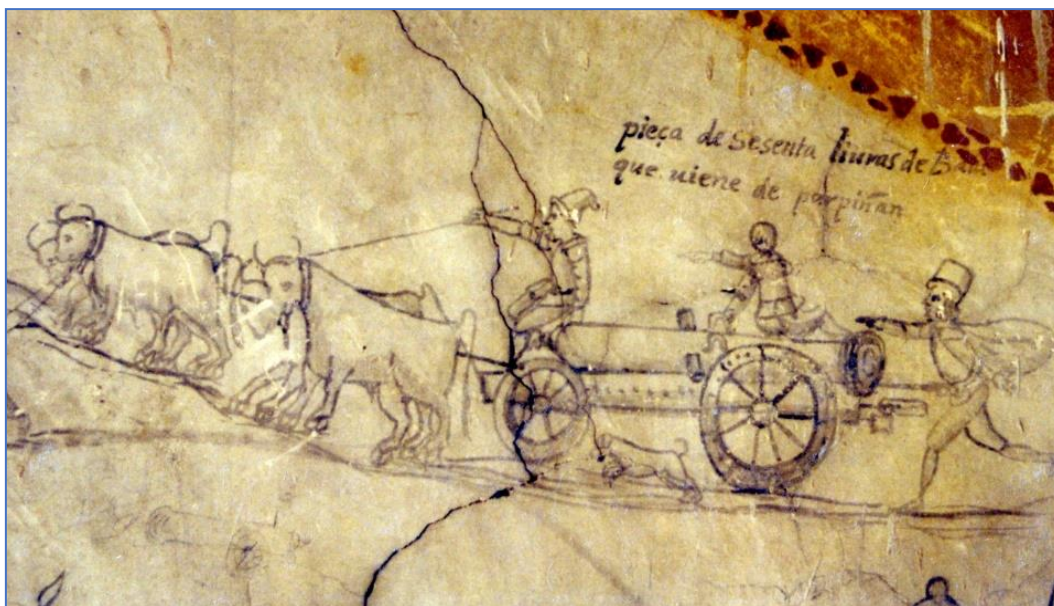 pieça de sesenta liuras de
que uiene de parpiñan